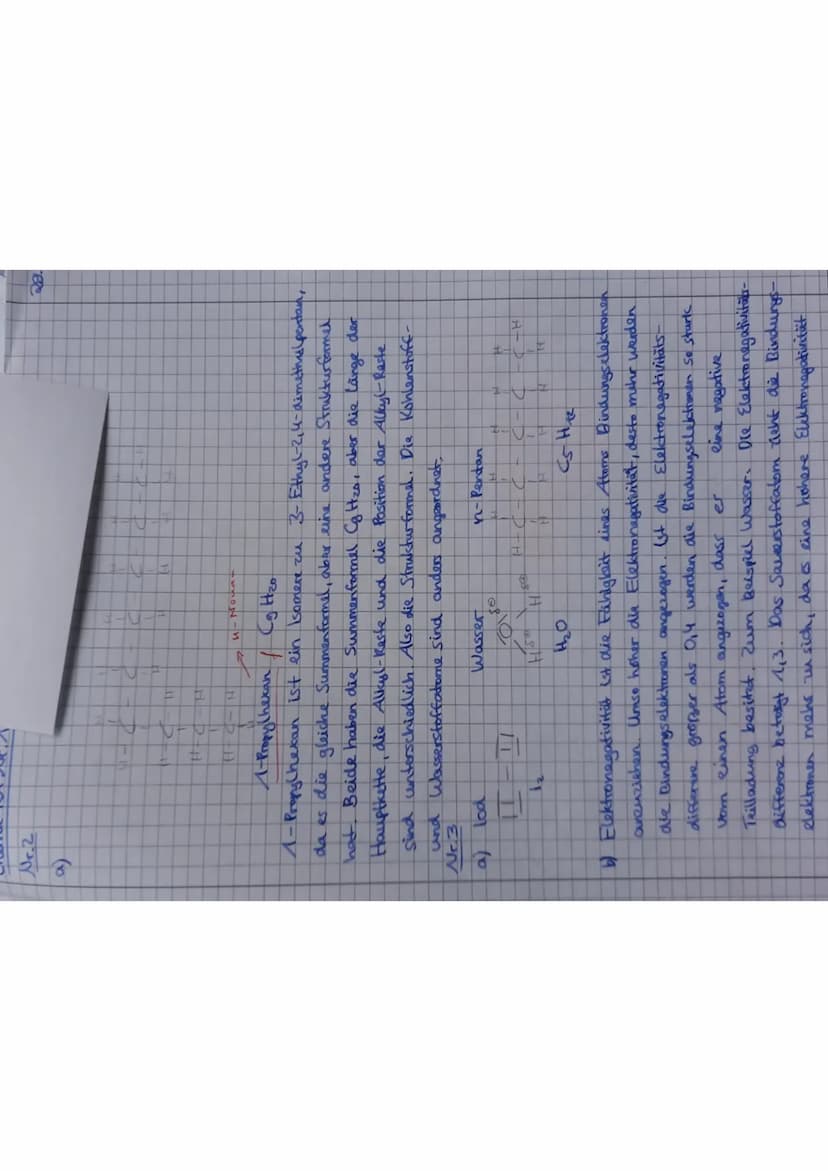 Nr. 2
a)
1-Propylhexan / C9H20
→ n-Nonan
1-Propylhexan ist ein Isomere zu 3-Ethyl-2,4-dimethylpentan,
da es die gleiche Summenformel, aber eine andere Strukturformel
hat. Beide haben die Summenformel C9H20, aber die Länge der
Hauptkette, die Alkyl-Reste und die Position der Alkyl-Reste
sind unterschiedlich. Also die Strukturformel. Die Kohlenstoff-
und Wasserstoffatome sind anders angeordnet.
Nr. 3
a) Iod Wasser n-Pentan
I2 H2O C5H12
b) Elektronegativität ist die Fähigkeit eines Atoms Bindungselektronen
anzuziehen. Umso höher die Elektronegativität, desto mehr werden
die Bindungselektronen angezogen. Ist die Elektronegativitäts-
differenz größer als 0,4 werden die Bindungselektronen so stark
vom einen Atom angezogen, dass er eine negative
Teilladung besitzt. Zum Beispiel Wasser. Die Elektronegativitäts-
differenz beträgt 1,3. Das Sauerstoffatom zieht die Bindungs-
elektronen mehr zu sich, da es eine höhere Elektronegativität